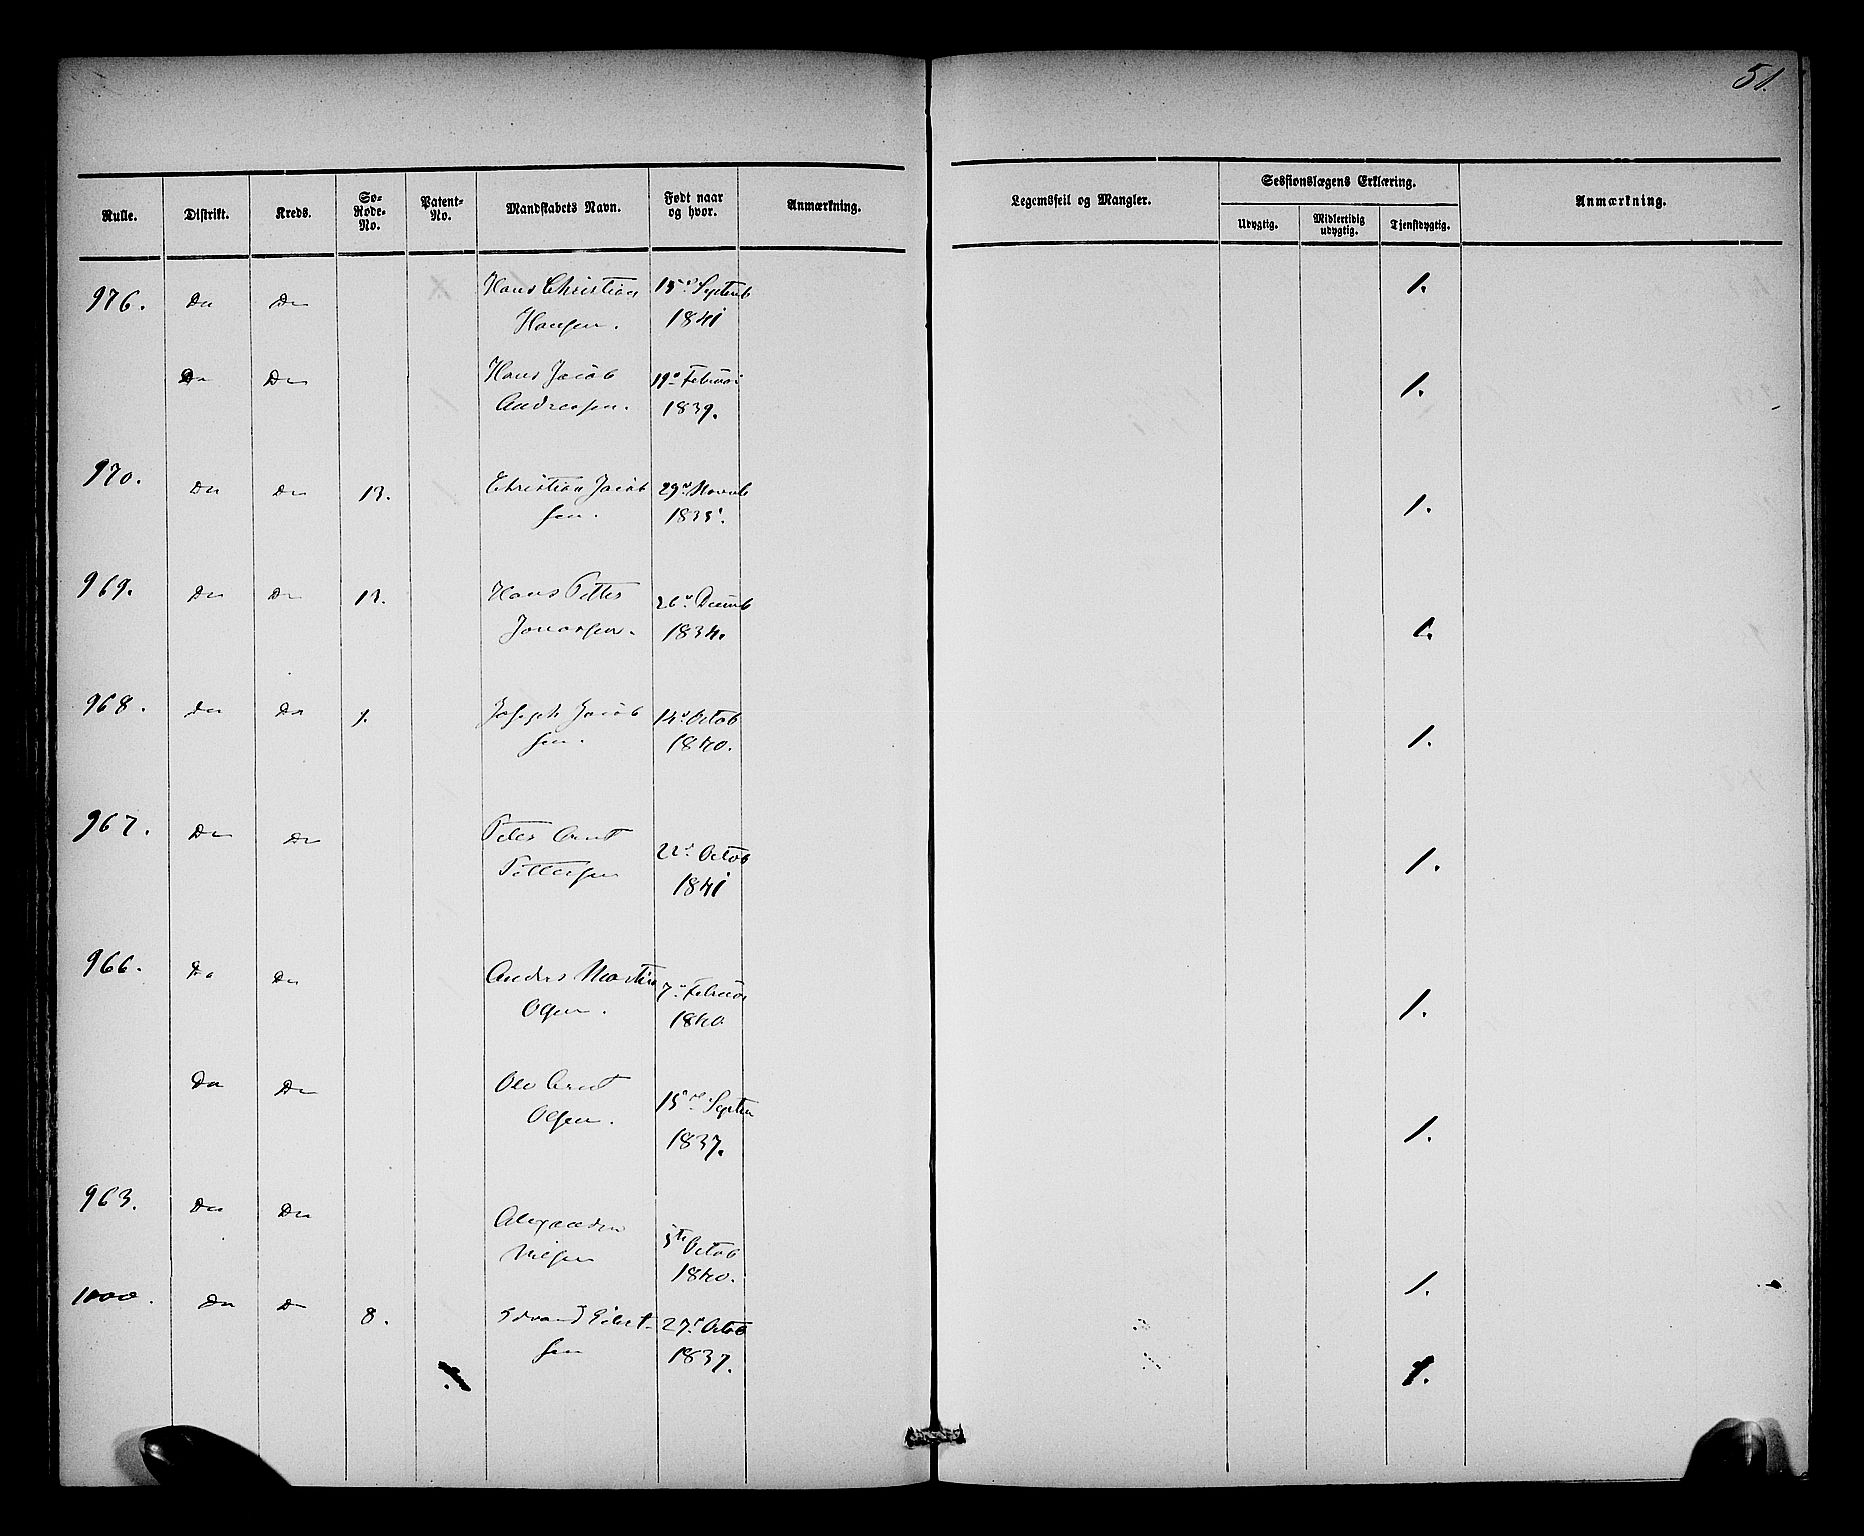 51.
Rulle. Distrikt. Kreds. Sø-Rode-No. Patent-No. Mandskabets Navn. Født naar og hvor. Anmærkning. Legemsfeil og Mangler. Sessionslægens Erklæring. Anmærkning.
Udygtig. Midlertidig udygtig. Tjenstdygtig.
976. Do Do Hans Christian 15de Septemb 1.
Hansen. 1841
Do Do Hans Jacob 19de Februar 1.
Andreasen. 1839.
970. Do Do 13. Christian Jacob 29de Novemb 1.
sen. 1835.
969. Do Do 13. Hans Petter 26de Decemb
Jonassen. 1834. 1.
968. Do Do 9. Joseph Jacob 14de Octob
sen. 1840. 1.
967. Do Do Peter Arnt 22de Octob
Pettersen 1841 1.
966. Do Do Anders Martin 7de Februar
Olsen. 1840 1.
Do Do Ole Arnt 15de Septem
Olsen. 1837. 1.
963. Do Do Alexander 5te Octob
Nilsen 1840. 1.
1000. Do Do 8. Edvard Eilert- 27de Octob
sen 1837. 1.